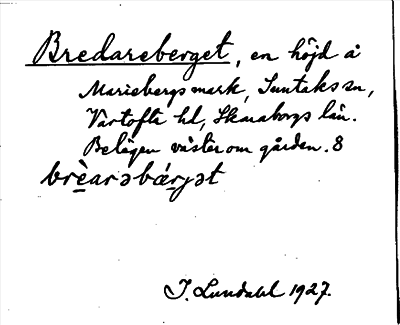 Bredareberget, en höjd å
Mariebergs mark, Suntaks sn,
Vartofta hd, Skaraborgs län.
Belägen väster om gården. 8
brèarəbærjət
I. Lundahl 1927.